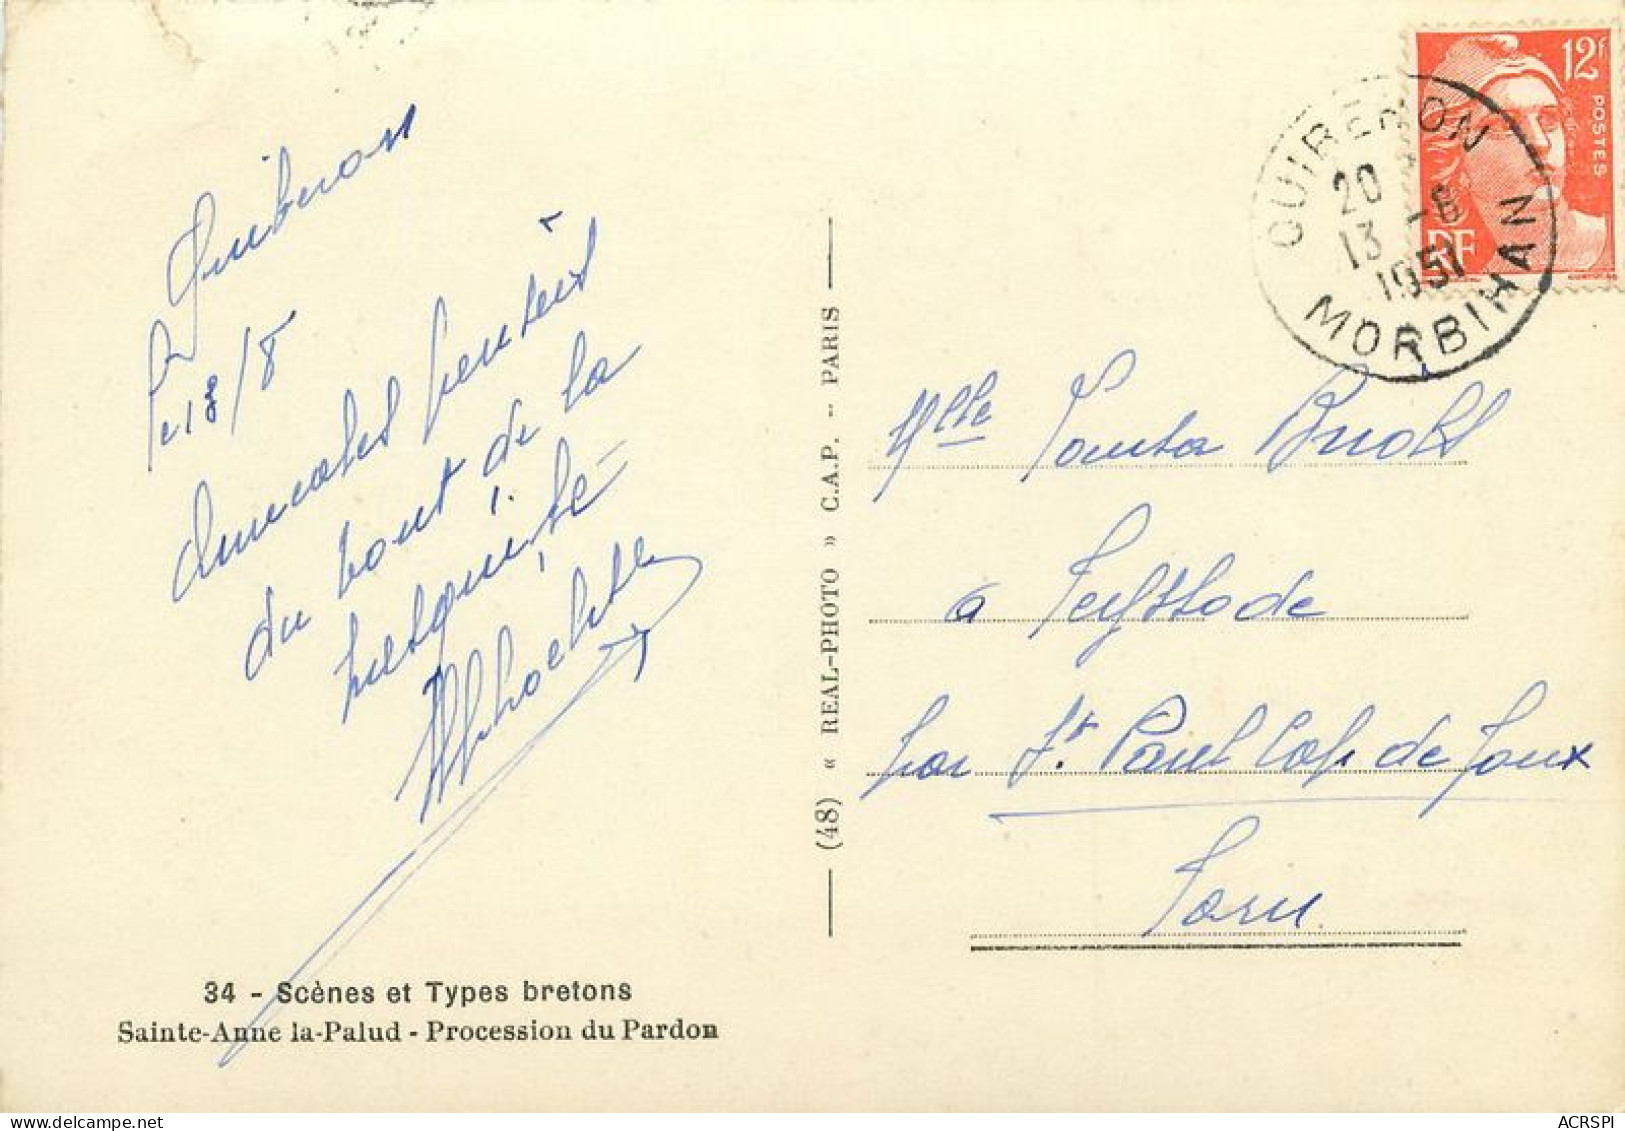 Quiberon
Le 13/8
Amicales pensées
du bout de la
presqu'île
12f
POSTES
RF
QUIBERON
20
13 -8
1951
MORBIHAN
Mlle
à
par St Paul Cap de Joux
Tarn
(48) « REAL-PHOTO » C.A.P. - PARIS
34 - Scènes et Types bretons
Sainte-Anne la-Palud - Procession du Pardon
ACRSPI